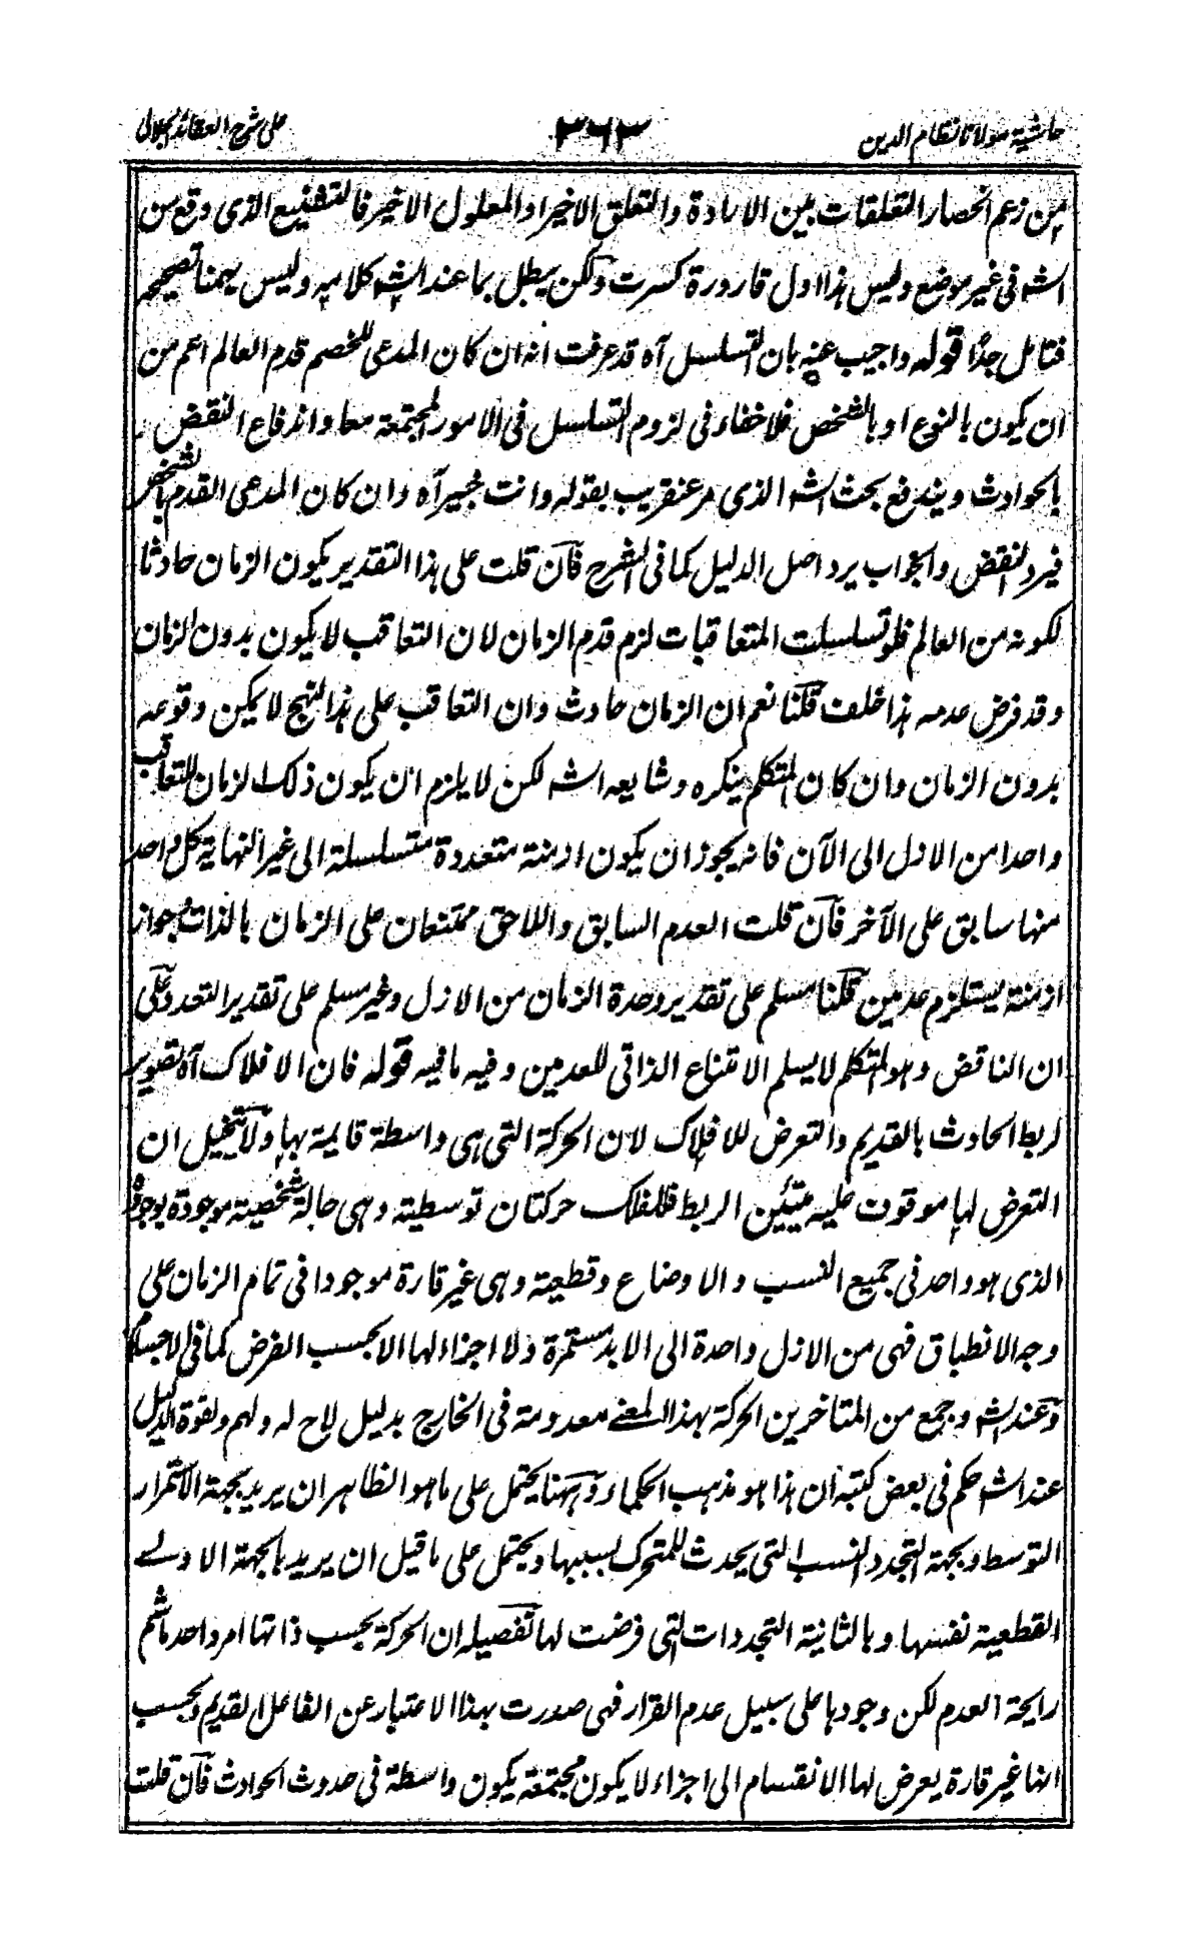 حاشية مولانا نظام الدين
٣٦٣
على شرح العقائد الجلالى
من زعم انحصار التعلقات بين الارادة والتعلق الاخير او المعلول الاخير فالتشنيع الذى وقع من
الشه فى غير موضع وليس هذا اول قارورة كسرت ولكن يبطل بما عند الشه كلامه وليس يهمنا تصحيحه
فتامل جدًا قوله واجيب عنه بان التسلسل آه قد عرفت انه ان كان المدعى للخصم قدم العالم اعم من
ان يكون بالنوع او بالشخص فلا خفاء فى لزوم التسلسل فى الامور المجتمعة معا واندفاع النقض
بالحوادث ويندفع بحث الشه الذى مر عنقريب بقوله وانت خبير آه وان كان المدعى القدم بالشخص
فيرد النقض والجواب يرد اصل الدليل كما فى الشرح فآن قلت على هذا التقدير يكون الزمان حادثا
لكونه من العالم فلو تسلسلت المتعاقبات لزم قدم الزمان لان التعاقب لا يكون بدون الزمان
وقد فرض عدمه هذا خلف قلنا نعم ان الزمان حادث وان التعاقب على هذا النهج لا يمكن وقوعه
بدون الزمان وان كان المتكلم ينكره وشايعه الشه لكن لا يلزم ان يكون ذلك الزمان للتعاقب
واحدا من الازل الى الآن فانه يجوز ان يكون ازمنة متعددة متسلسلة الى غير النهاية كل واحد
منها سابق على الآخر فآن قلت العدم السابق واللاحق ممتنعان على الزمان بالذات وجواز
ازمنة يستلزم عدمين قلنا مسلم على تقدير وحدة الزمان من الازل وغير مسلم على تقدير التعدد وعلى
ان الناقض وهو المتكلم لا يسلم الامتناع الذاتى للعدمين وفيه ما فيه قوله فان الافلاك آه تصوير
لربط الحادث بالقديم والتعرض للافلاك لان الحركة التى هى واسطة قايمة بها ولا تتخيل ان
التعرض لها موقوف عليه الربط فللفلك حركتان توسطية وهى حالة شخصية موجودة بوجود
الذى هو واحد فى جميع النسب والاوضاع وقطعية وهى غير قارة موجودا فى تمام الزمان على
وجه الانطباق فهى من الازل واحدة الى الابد مستمرة ولا اجزاء لها الا بحسب الفرض كما فى الاجسام
وعند الشه وجمع من المتاخرين الحركة بهذا المعنے معدومة فى الخارج بدليل لاح له ولهم ولقوة الدليل
عند الشه حكم فى بعض كتبه ان هذا هو مذهب الحكماء وههنا يحتمل على ما هو الظاهر ان يريد بجهة الاستمرار
التوسط وبجهة التجدد النسب التى يحدث للمتحرك بسببها ويحتمل على ما قيل ان يريد بالجهة الاولے
القطعية نفسها وبالثانية التجددات التى فرضت لها تفصيله ان الحركة بحسب ذاتها امر واحد ماشم
رايحة العدم لكن وجودها على سبيل عدم القرار فهى صدرت بهذا الاعتبار عن الفاعل القديم وبحسب
انها غير قارة يعرض لها الانقسام الى اجزاء لا يكون مجتمعة يكون واسطة فى حدوث الحوادث فآن قلت